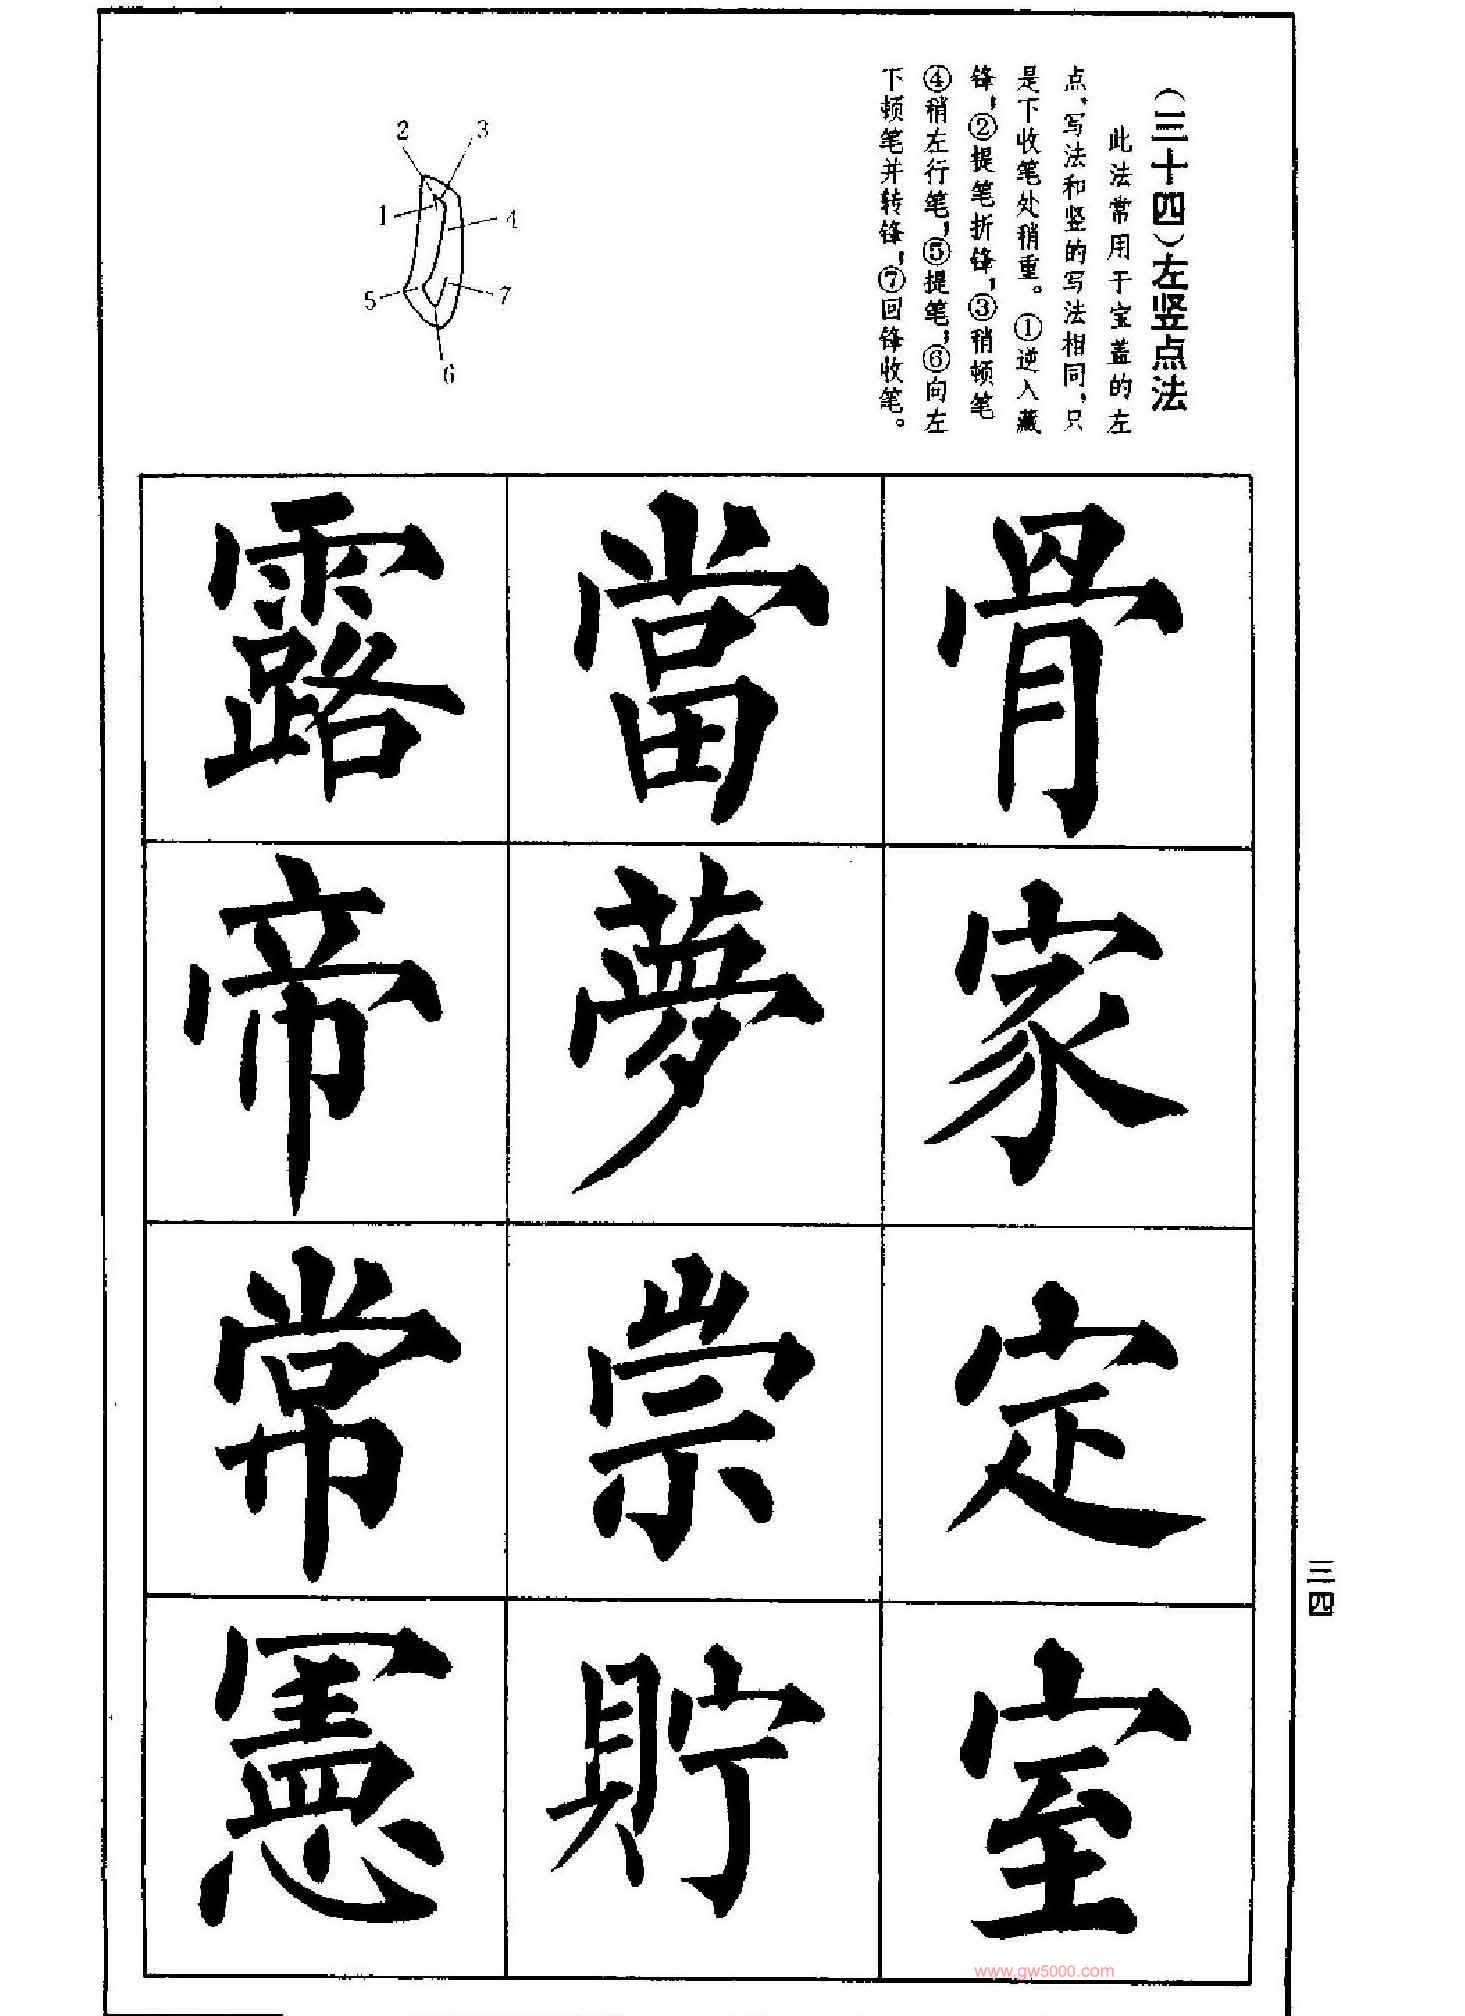 （三十四）左竖点法
此法常用于宝盖的左
点，写法和竖的写法相同，只
是下收笔处稍重。①逆入藏
锋；②提笔折锋；③稍顿笔
④稍左行笔；⑤提笔；⑥向左
下顿笔并转锋；⑦回锋收笔。
2 3
1 4
5 7
6
骨家定室
當夢崇貯
露帝常憲
三四
www.gw5000.com